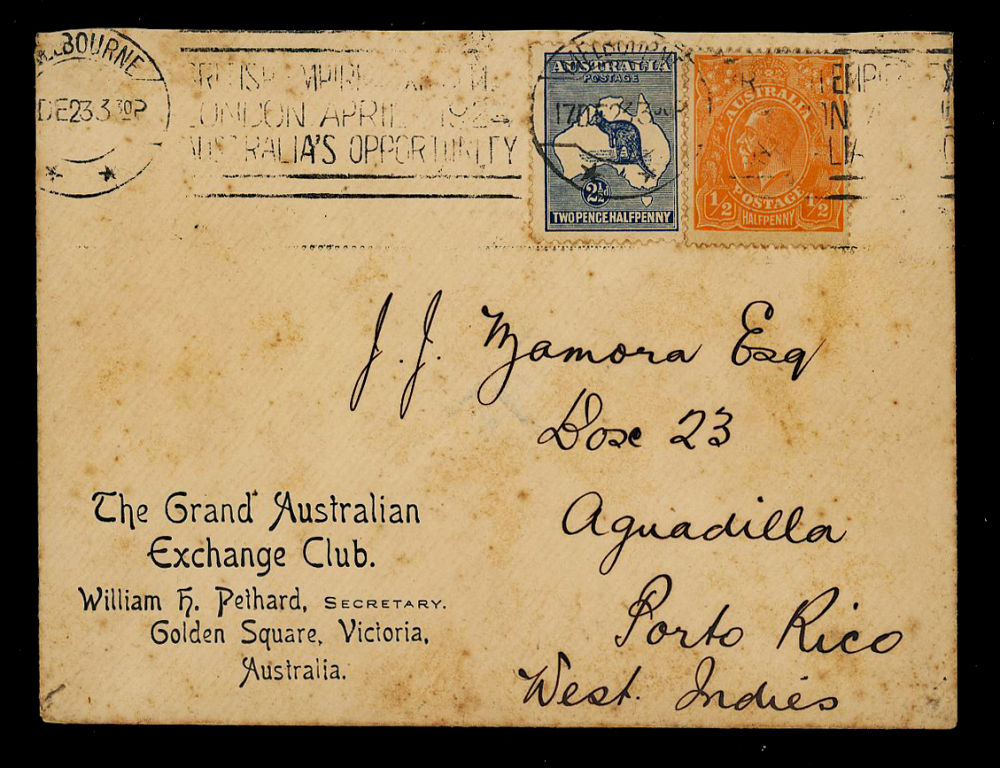 MELBOURNE
DE23 3 30P
BRITISH EMPIRE
LONDON APRIL 1924
AUSTRALIA'S OPPORTUNITY
MELBOURNE
17DE23 3 30P
AUSTRALIA
POSTAGE
2½d
TWOPENCEHALFPENNY
AUSTRALIA
POSTAGE
½ HALFPENNY ½
J. J. Zamora Esq
Box 23
Aguadilla
Porto Rico
West. Indies
The Grand Australian
Exchange Club.
William H. Pethard, SECRETARY.
Golden Square, Victoria,
Australia.